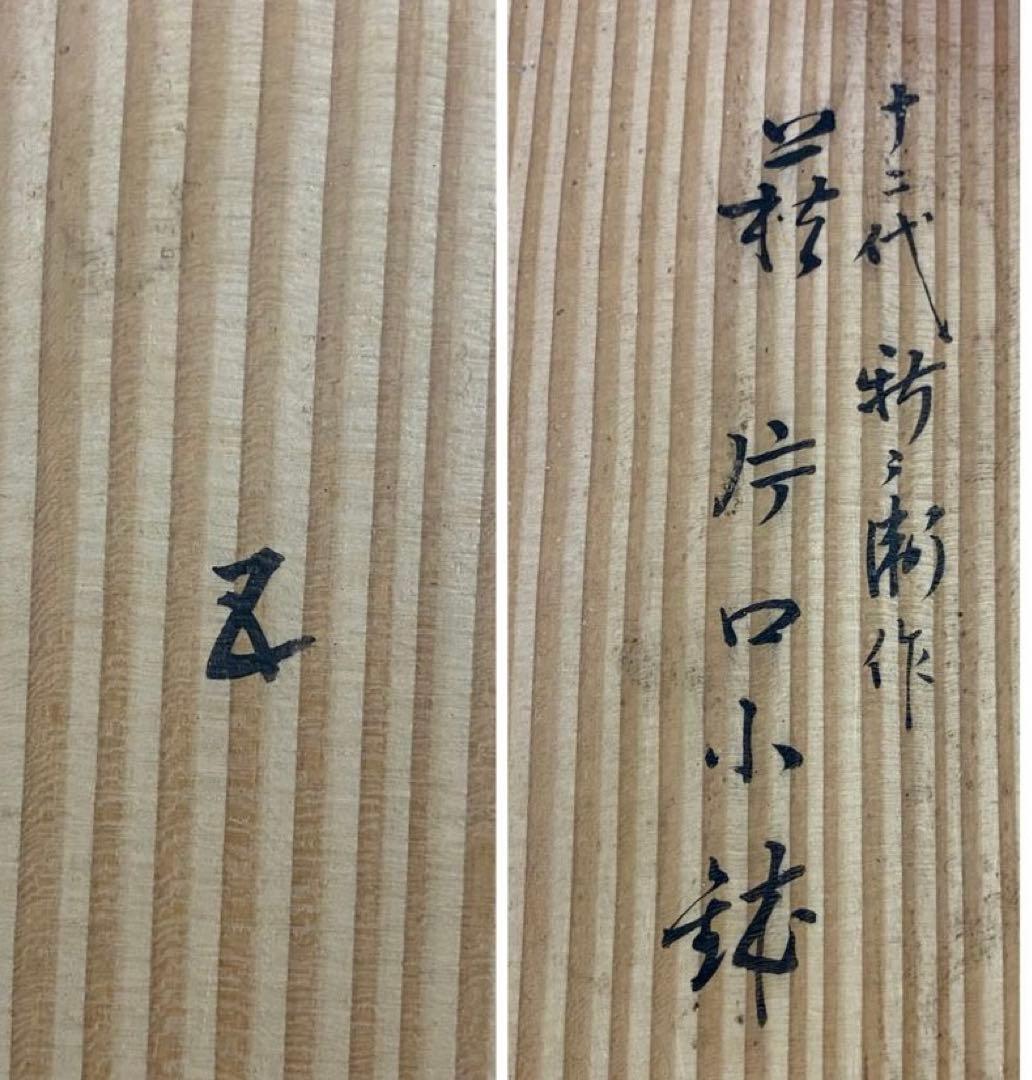 十二代 新兵衛作
萩 片口小鉢